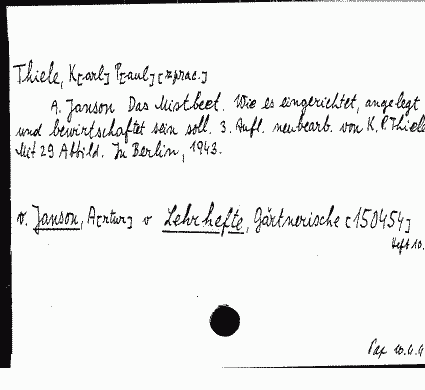 Thiele, K[arl] P[aul] [oprac.]
A. Janson Das Mistbeet. Wie es eingerichtet, angelegt
und bewirtschaftet sein soll. 3. Aufl. neubearb. von K. P. Thiele
Mit 29 Abbild. In Berlin, 1943.
v. Janson, A[rtur] v Lehrhefte, Gärtnerische [150454]
Heft 10.